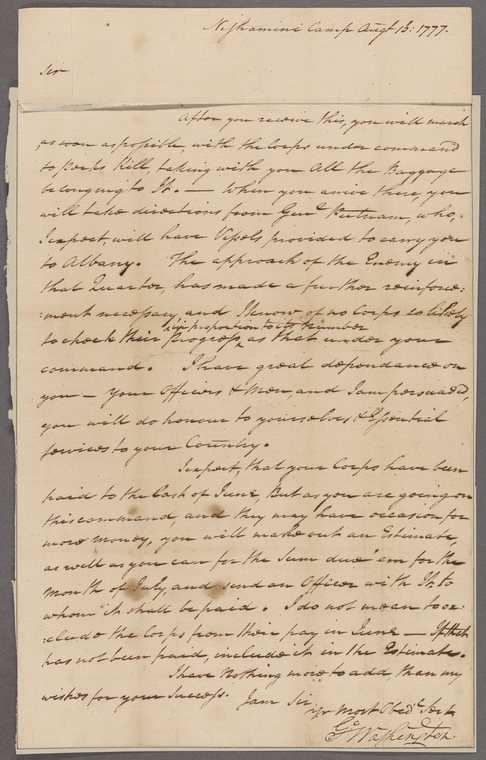 Neshamini Camp Augt 16: 1777.
Sir
After you receive this, you will march
as soon as possible, with the Corps under command
to Peeks Kill, taking with you All the Baggage
belonging to It. — When you arrive there, you
will take directions from Genl Putnam, who,
I expect, will have Vessels provided to carry you
to Albany. The approach of the Enemy in
that Quarter, has made a further reinforce:
:ment necessary, and I know of no Corps so likely
in proportion to its number
to check their Progress, ^ as that under your
command. I have great dependance on
you — your Officers & Men, and I am persuaded,
you will do honour to yourselves, & Essential
services to your Country.
I expect, that your Corps have been
paid to the last of June, But as you are going on
this command, and they may have occasion for
more Money, you will make out an Estimate,
as well as you can for the Sum due 'em for the
Month of July, and send an Officer with It, to
whom it shall be paid. I do not mean to ex:
:clude the Corps from their pay in June — If that
has not been paid, include it in the Estimate.
I have Nothing more to add, than my
wishes for your Success. I am Sir
Yr Most Obedt Servt
Go Washington